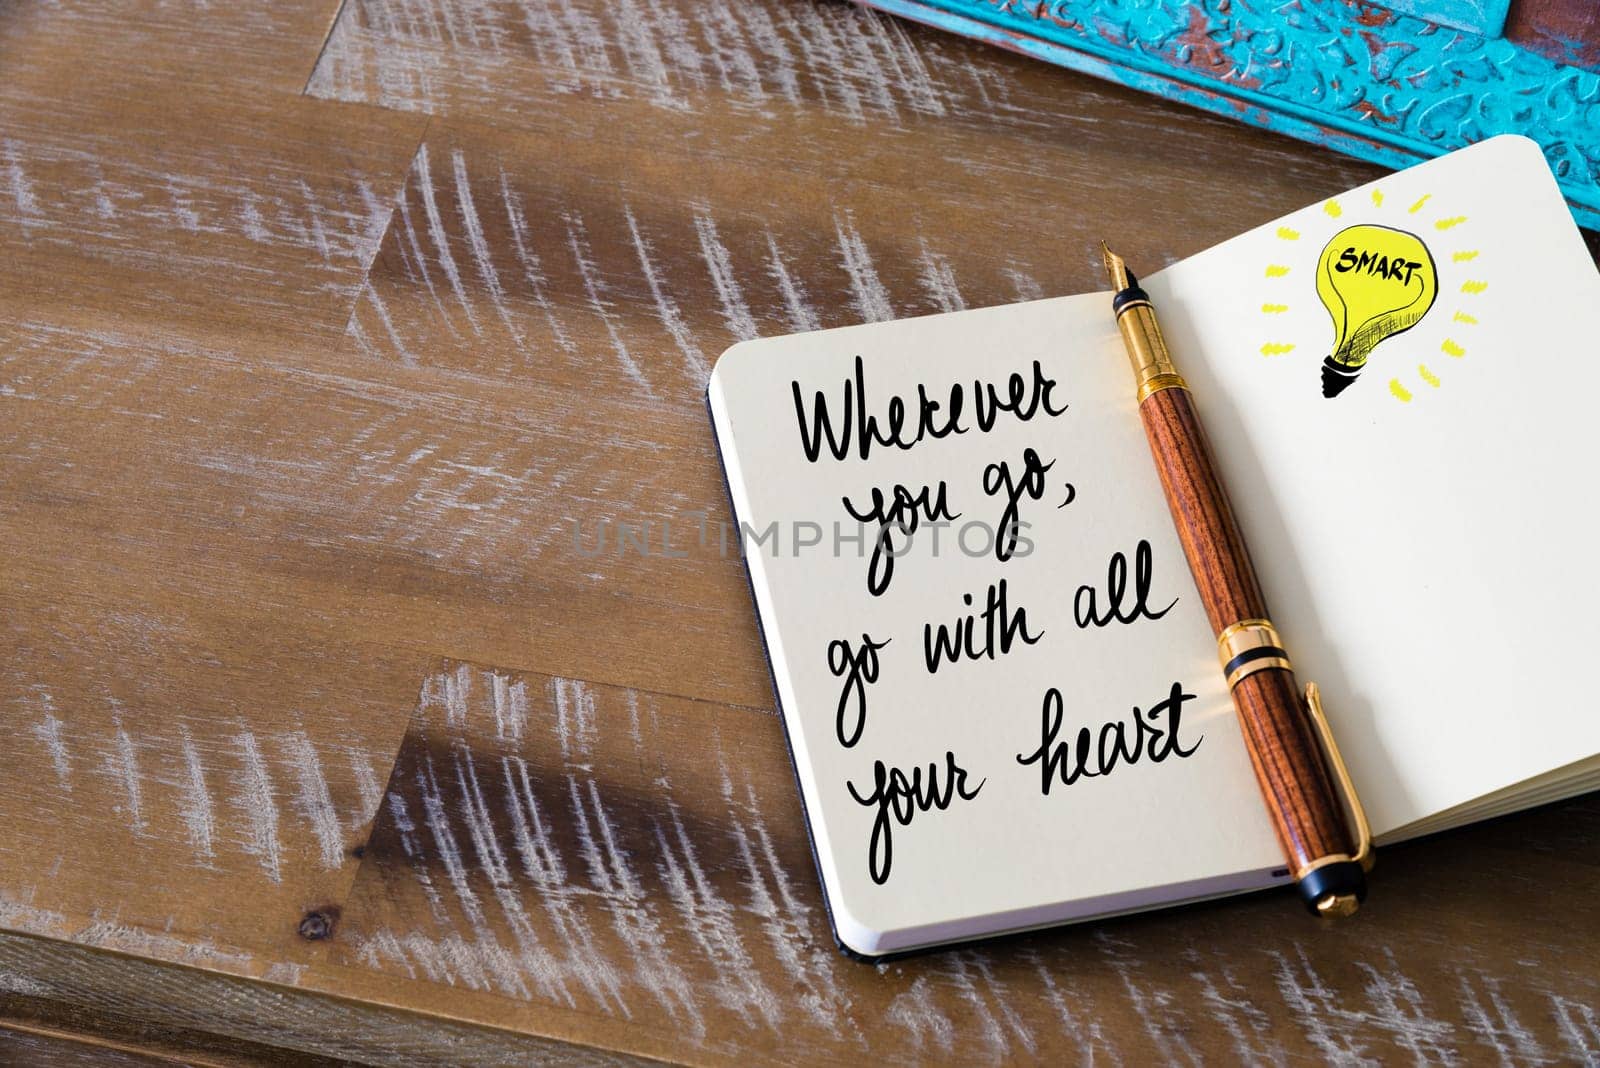 Wherever
you go,
go with all
your heart
SMART
UNLIMPHOTOS